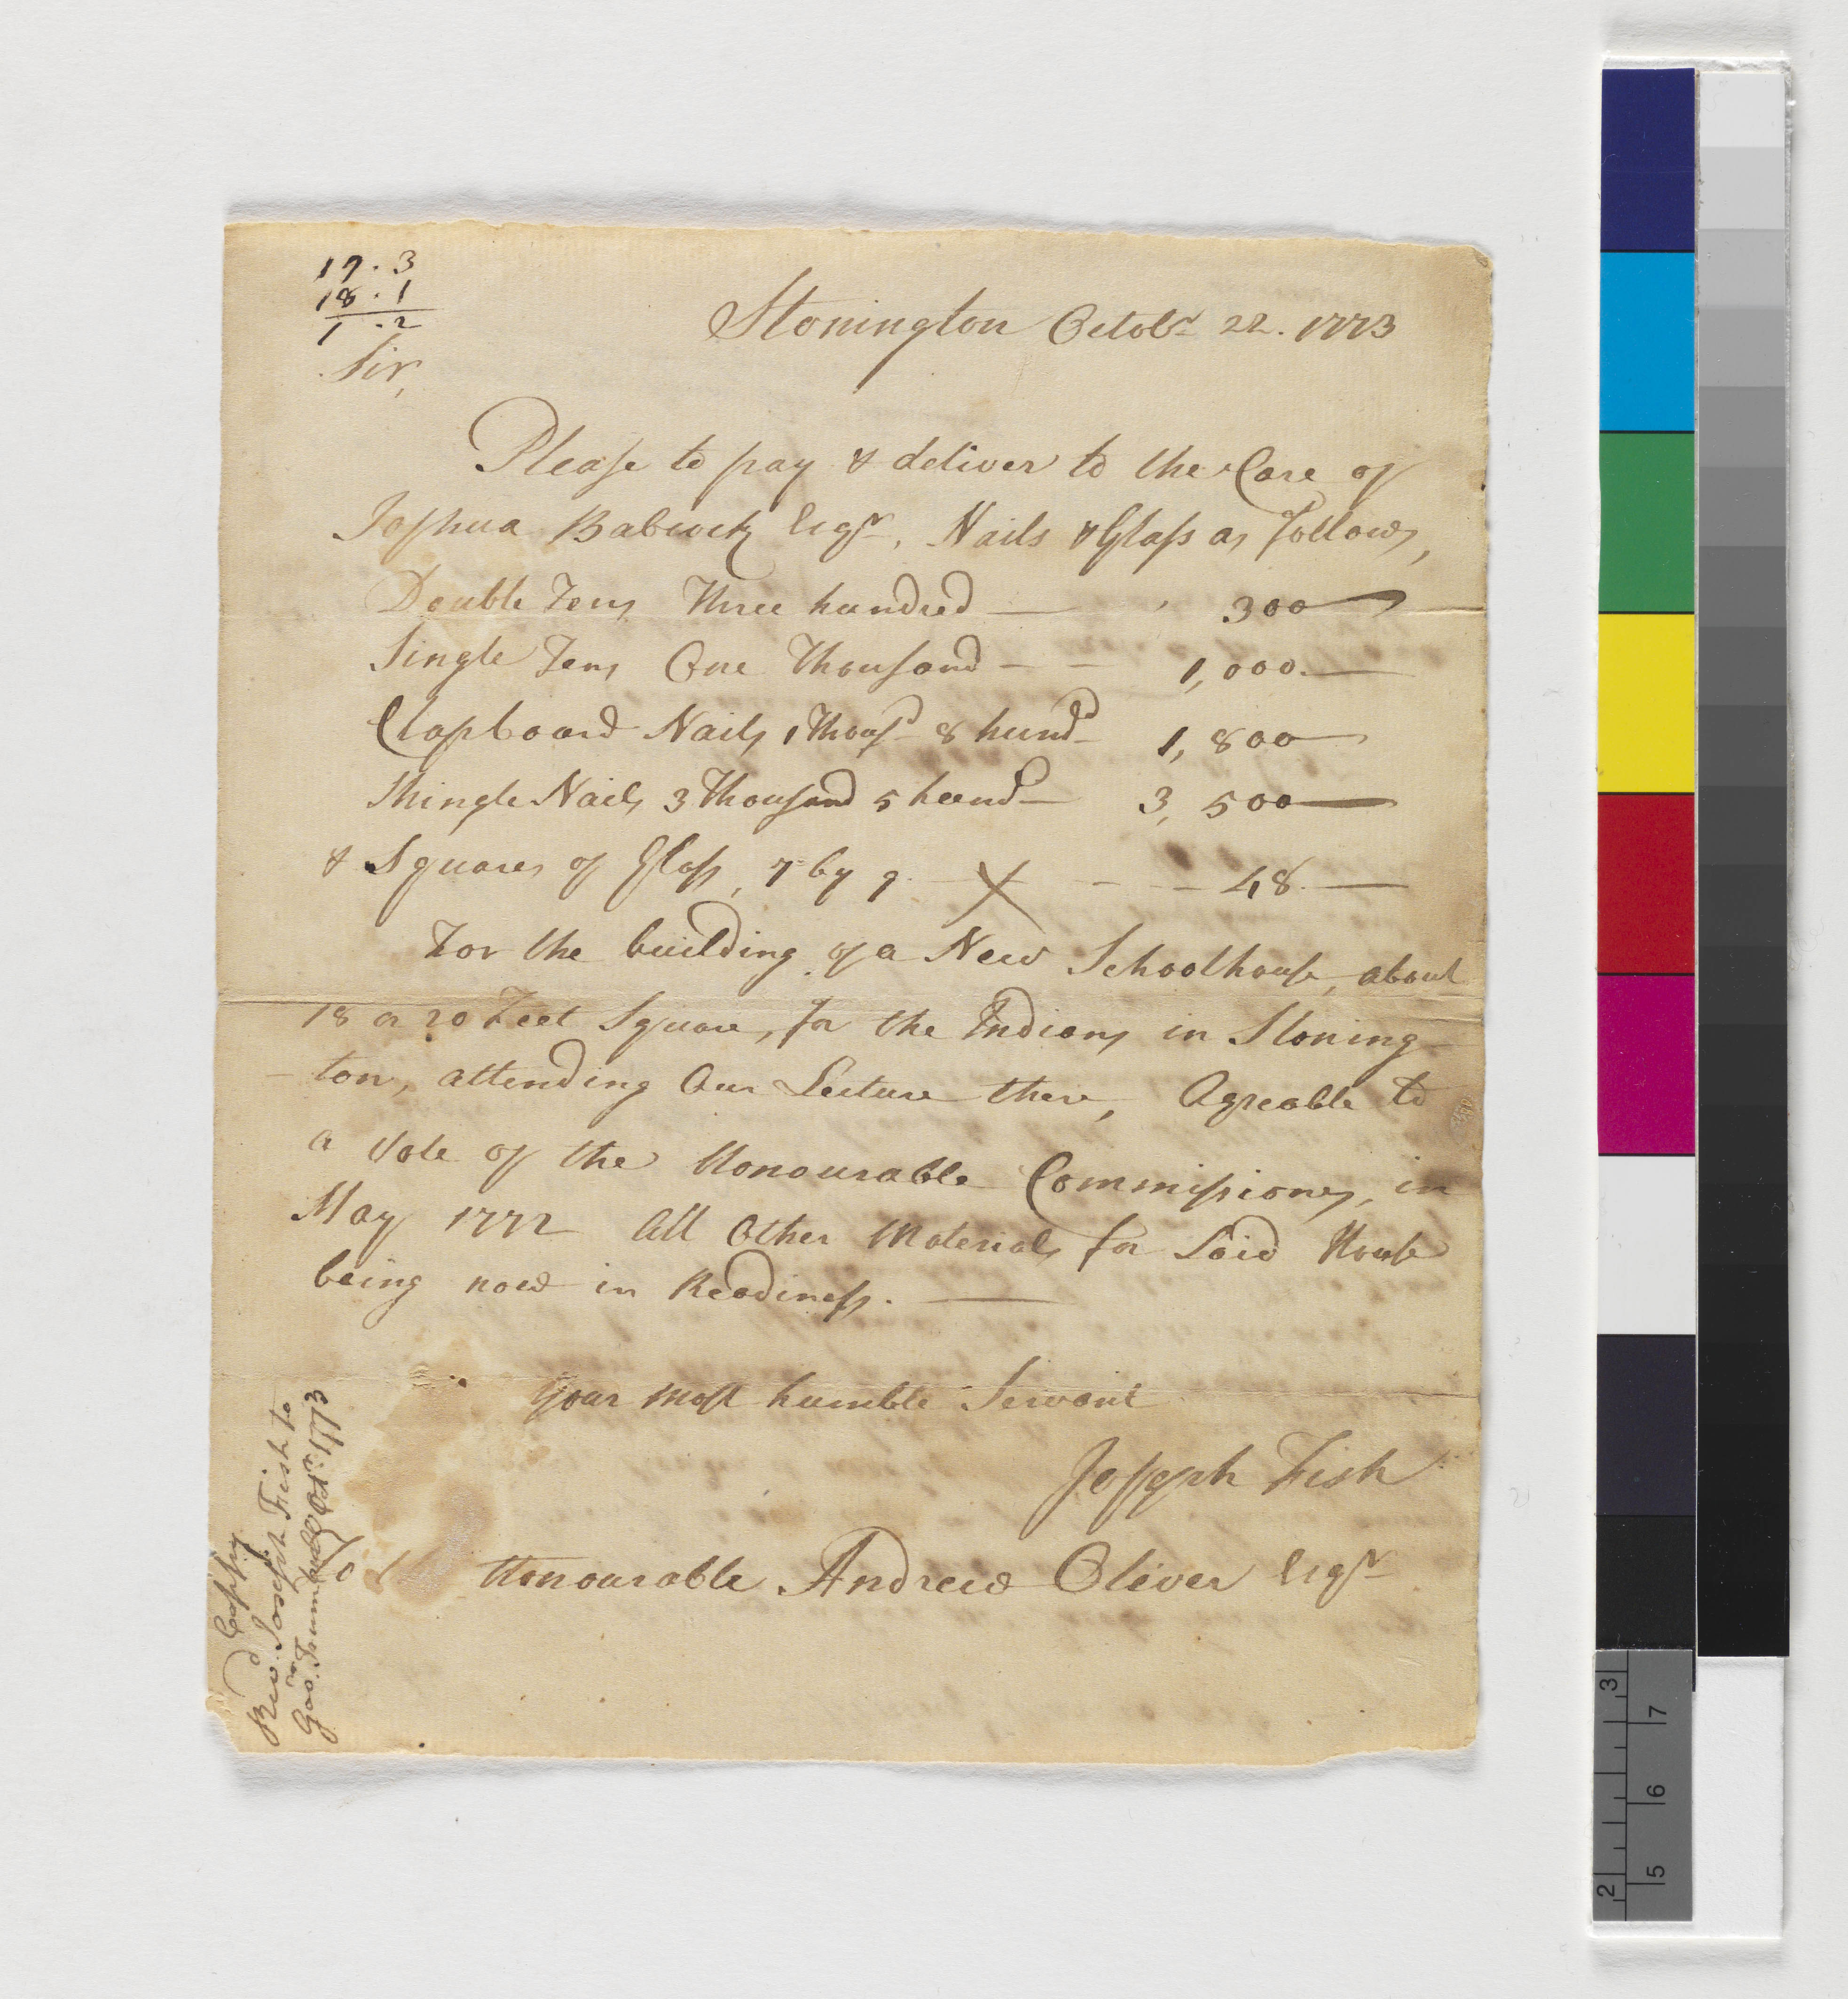 17 . 3
18 . 1
1 . 2
Stonington Octobr 22. 1773
Sir,
Please to pay & deliver to the Care of
Joshua Babcock Esqr, Nails & Glass as follows,
Double Tens Three hundred — 300 —
Single Tens One Thousand — — 1,000. —
Clapboard Nails 1 Thousd 8 hundd 1,800 —
Shingle Nails 3 Thousand 5 hund — 3,500 —
& Squares of Glass, 7 by 9. — X — — — 48. —
For the building of a New Schoolhouse, about
18 or 20 Feet Square, for the Indians in Stoning-
-ton, attending Our Lecture there, Agreable to
a Vote of the Honourable Commissioners, in
May 1772 All Other Materials for Said House
being now in Readiness. —
Your most humble Servant
Joseph Fish
To Honourable Andrew Oliver Esqr
Coppy
Revd. Joseph Fish to
Govr. Trumbull Octr. 1773